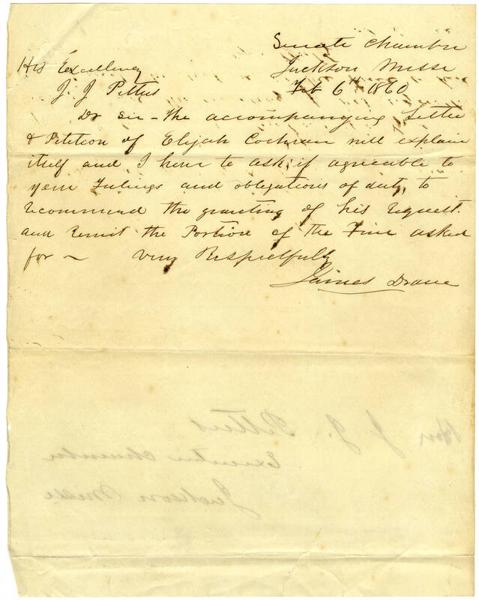 Senate Chamber
Jackson Missi
Feb 6th 1860
His Excellency
J. J. Pettus
Dr Sir - the accompanying Letter
& Petition of Elijah Cochran will explain
itself and I have to ask, if agreeable to
your Feelings and obligations of duty, to
recommend the granting of his request
and Remit the Portion of the Fine asked
for ~ Very Respectfully
James Drane
Hon J. J. Pettus
Executive Chamber
Jackson Missi